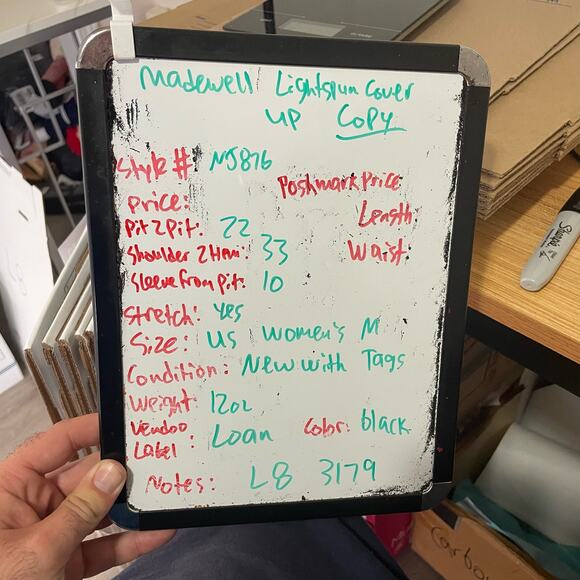 Madewell Lightspun Cover
up Copy
Style #: NJ876
Poshmark Price:
Price:
Length:
Pit 2 Pit: 22
Waist:
Shoulder 2 Hem: 33
Sleeve from pit: 10
Stretch: yes
Size: US Women's M
Condition: New with Tags
Weight: 12oz
Vendoo
Label: Loan Color: black
Notes: L8 3179
Sharpie